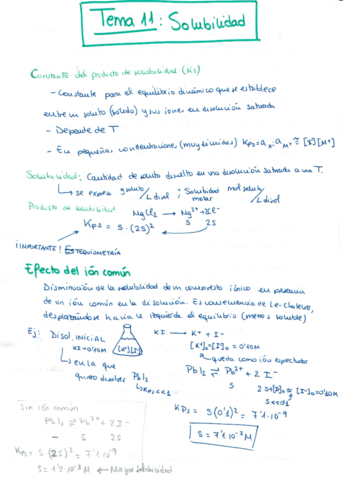 Tema 11: Solubilidad
Constante del producto de solubilidad (Ks)
- Constante para el equilibrio dinámico que se establece
entre un soluto (sólido) y sus iones en disolución saturada
- Depende de T
- En pequeñas concentraciones (muy diluidas) Kps = a x- · a M+ ≅ [X-][M+]
Solubilidad: Cantidad de soluto disuelto en una disolución saturada a una T.
↳ se expresa g soluto / L disol ; Solubilidad molar mol soluto / L disol
Producto de solubilidad
MgCl2 → Mg2+ + 2Cl-
Kps = s · (2s)²   s   2s
¡IMPORTANTE! ESTEQUIOMETRÍA
Efecto del ión común
Disminución de la solubilidad de un compuesto iónico en presencia
de un ión común en la disolución. Es consecuencia de Le-Chatelier,
desplazándose hacia la izquierda el equilibrio (menos soluble)
Ej: Disol. INICIAL
KI → K+ + I-
KI = 0'10M
[K+][I-]
[K+]o = [I-]o = 0'10M
queda como ión espectador
↳ en la que
quiero disolver PbI2
↳ Kps <<1
PbI2 ⇌ Pb2+ + 2I-
s   2s + [I-]o ≅ [I-]o = 0'10M
s << 0'1
Kps = s(0'1)² = 7'1·10-9
s = 7'1·10-7 M
Sin ión común
PbI2 ⇌ Pb2+ + 2I-
-   s   2s
Kps = s(2s)² = 7'1·10-9
s = 1'2·10-3 M ← Mayor solubilidad